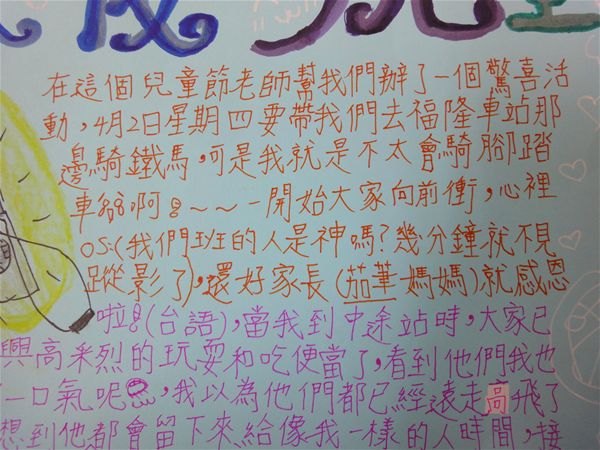 在這個兒童節老師幫我們辦了一個驚喜活
動,4月2日星期四要帶我們去福隆車站那
邊騎鐵馬,可是我就是不太會騎腳踏
車啊~~一開始大家向前衝,心裡
OS:(我們班的人是神嗎?幾分鐘就不見
蹤影了),還好家長(茄華媽媽)就感恩
啦(台語),當我到中途站時,大家已
興高采烈的玩耍和吃便當了,看到他們我也
一口氣呢,我以為他們都已經遠走高飛了
想到他都會留下來給像我一樣的人時間,接